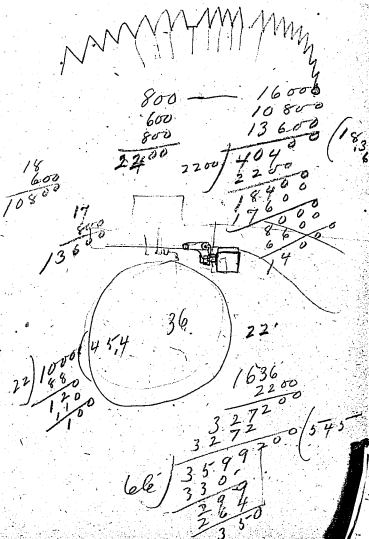 800 — 16000
600 10800
800 13600
2200
2200 ) 40400 ( 18,36
2200
18400
17600
8000
6600
1400
18
600
10800
17
800
13600
36
22
22 ) 1000 ( 45,4
88
120
110
100
1636
2200
327200
3272
66 ) 3599200 ( 545
330
299
264
350